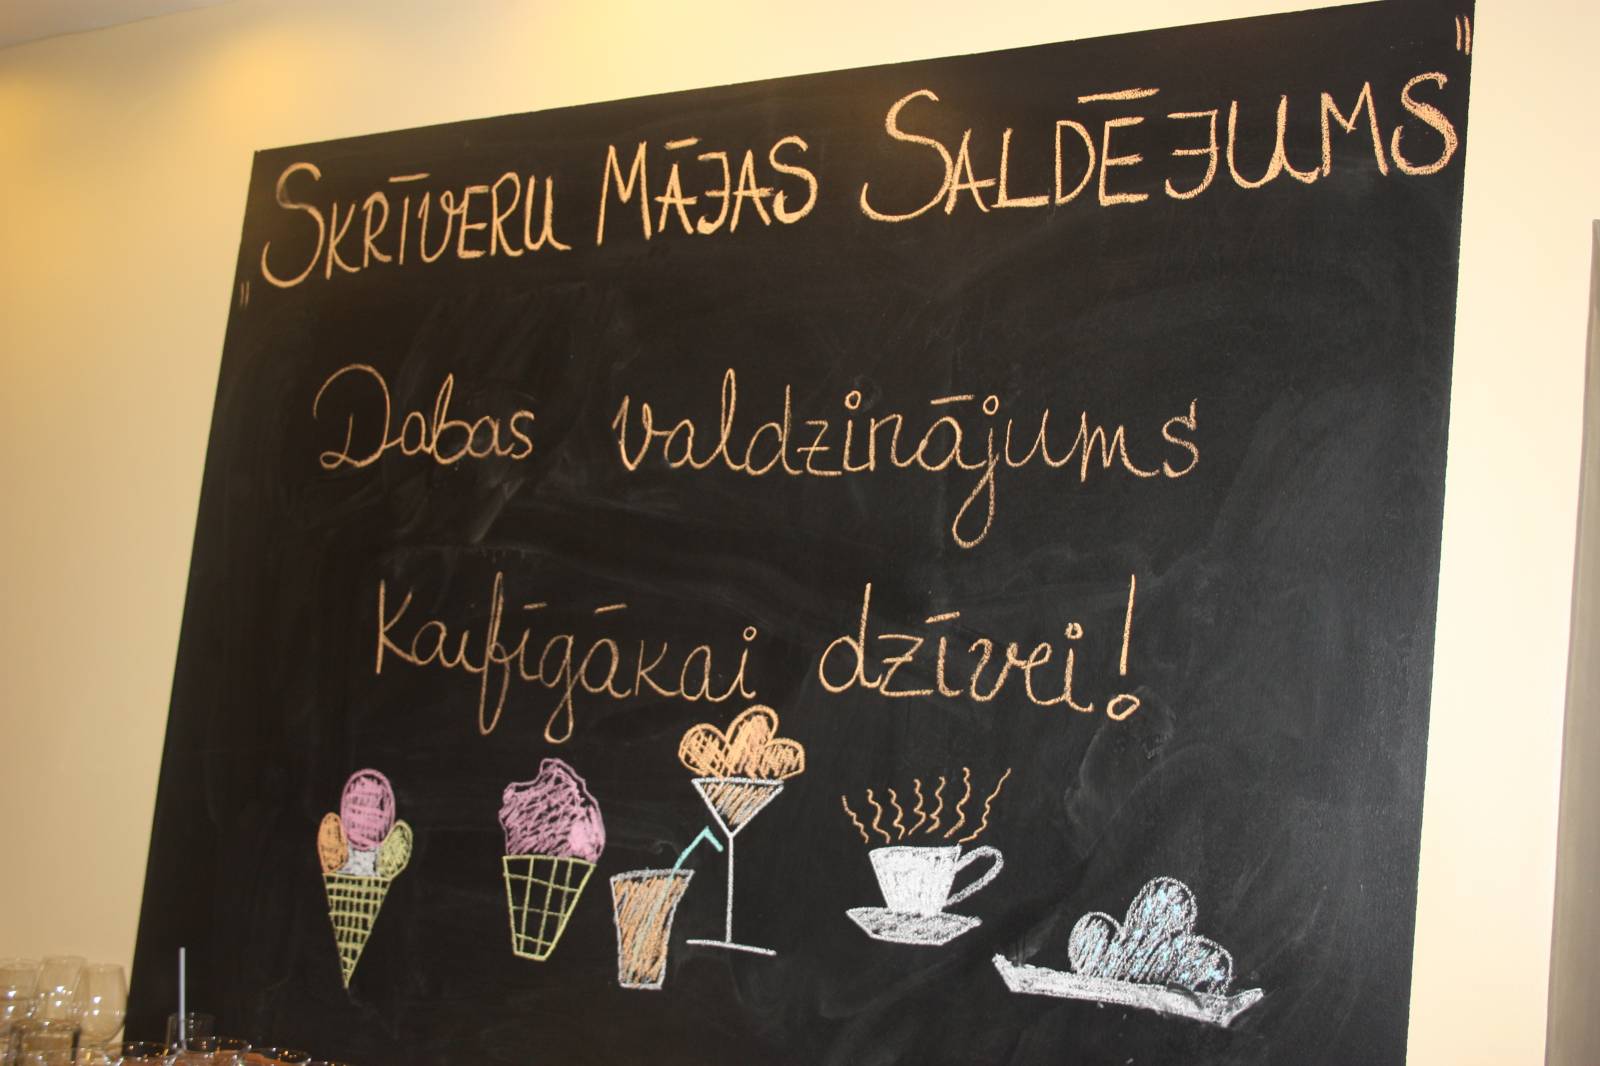 "SKRĪVERU MĀJAS SALDĒJUMS"
Dabas valdzinājums
Kaifīgākai dzīvei!